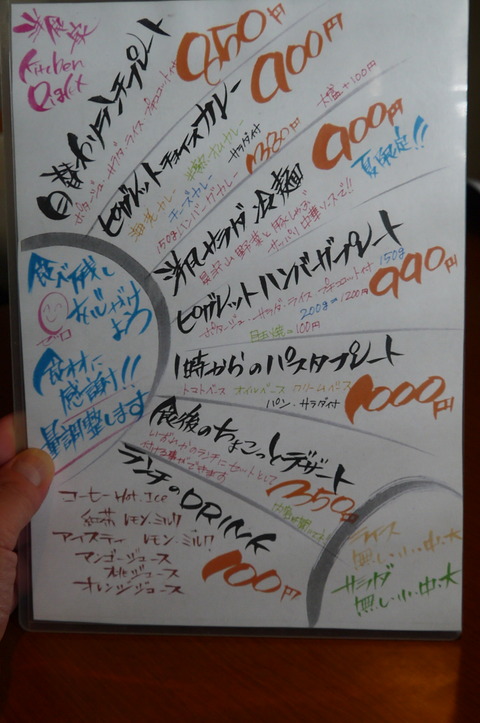 Kitchen
日替わりランチプレート
850円
ポタージュ・サラダ・ライス・プチデザート付
ピグレットチョイスカレー
900円
海老カレー
チーズカレー
サラダ付
150gハンバーグカレー
1380円
大盛+100円
サラダ冷麺
900円
夏限定!!
サッパリ中華ソースで!!
ピグレットハンバーグプレート
150g
990円
ポタージュ・サラダ・ライス・付
200g 1200円
目玉焼 100円
1時からのパスタプレート
トマトベース オイルベース クリームベース
パン・サラダ付
1000円
食後のちょこっとデザート
いずれかのランチにセットとして
350円
ランチのDRINK
100円
コーヒー Hot. Ice
紅茶 レモン.ミルク
アイスティー レモン.ミルク
マンゴージュース
桃ジュース
オレンジジュース
食べ残し
ゼロ
食材に
感謝!!
量調整します
ライス
無し.小.中.大
サラダ
無し.小.中.大